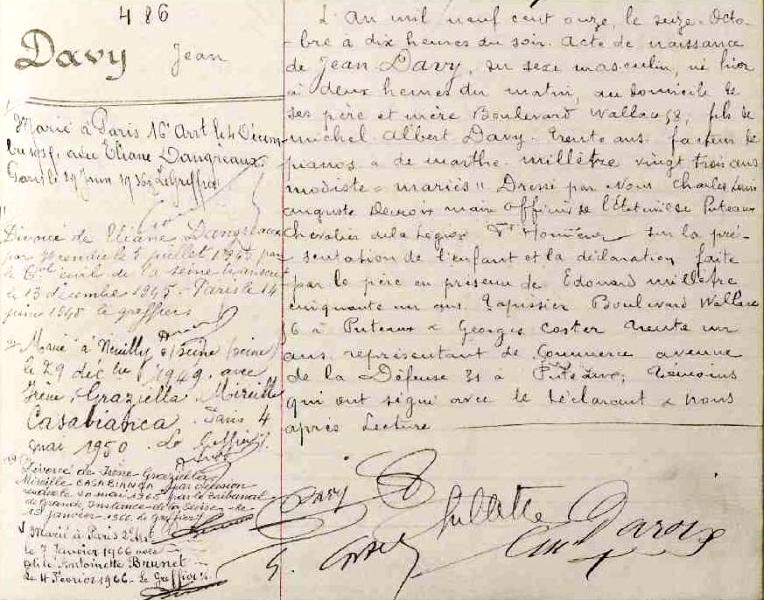 486
Davy Jean
Marié à Paris 16e Arrt le 4 Décem-
bre 1936 avec Eliane Dangreaux.
Paris le 29 Juin 1936 Le Greffier
Divorcé de Eliane Dangreaux
par jugement rendu le 5 juillet 1945 par
le Tal civil de la Seine transcrit
le 13 décembre 1945. Paris le 14
le greffier
Marié à Neuilly s/Seine (Seine)
le 29 décembre 1949 avec
Irène, Graziella Mireille
Casabianca. Paris 4
mai 1950. Le Greffier.
Divorcé de Irène Graziella
Mireille CASABIANCA par décision
rendue le 20 mai 1965 par le Tribunal
de Grande Instance de la Seine - le
13 janvier 1966 le Greffier
Marié à Paris 2e Arrt
le 7 Janvier 1966 avec
Antoinette Brunet
Le 4 Février 1966 - Le Greffier
L'An mil neuf cent onze, le seize Octo-
-bre à dix heures du soir. Acte de naissance
de Jean Davy, du sexe masculin, né hier
à deux heures du matin, au domicile de
ses père et mère Boulevard Wallace 58, fils de
Michel Albert Davy. trente ans. facteur de
pianos & de Marthe Milléttre vingt trois ans
modiste - mariés " Dressé par Nous Charles Louis
Auguste maire Officier de l'état civil de Puteaux
Chevalier de la Légion d'Honneur sur la pré-
-sentation de l'enfant et la déclaration faite
par le père en présence de Edouard
cinquante un ans. Tapissier Boulevard Wallace
56 à Puteaux & Georges Coster trente un
ans, représentant de Commerce avenue
de la Défense 31 à Puteaux, témoins
qui ont signé avec le déclarant & nous
après Lecture
Davy
G. Coster